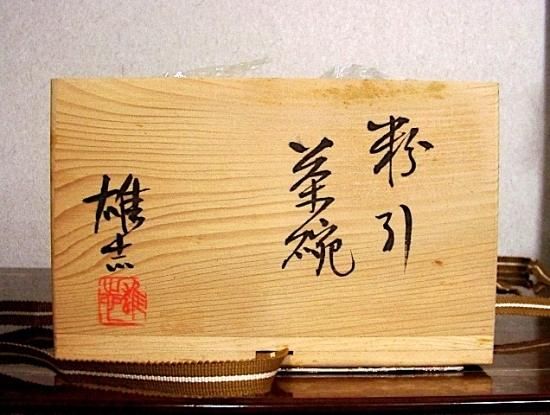 粉引
茶碗
雄志